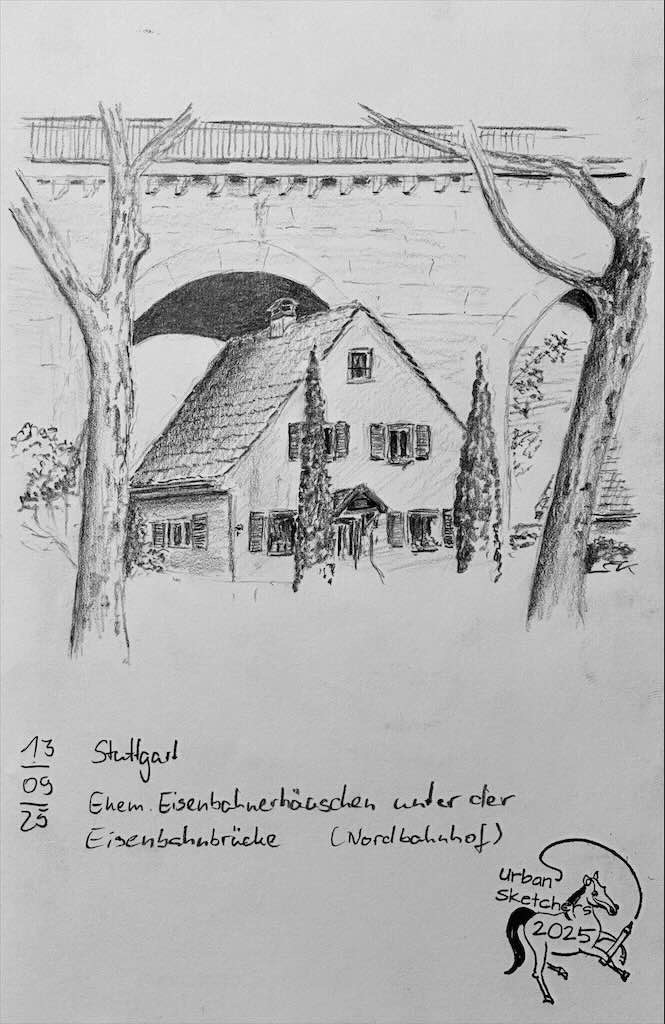 13
09
25
Stuttgart
Ehem. Eisenbahnerhäuschen unter der
Eisenbahnbrücke (Nordbahnhof)
urban
sketchers
2025